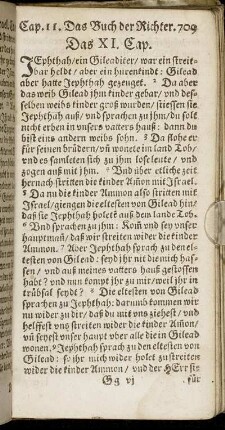 Cap. 11. Das Buch der Richter. 709
Das XI. Cap.
JEphthah/ein Gileaditer/ war ein streit-
bar heldt / aber ein hurenkindt: Gilead
aber hatte Jephthah gezeuget. 2 Da aber
das weib Gilead jhm kinder gebar/ und des-
selben weibs kinder groß wurden/ stiessen sie
Jephthah auß/ und sprachen zu jhm/ du solt
nicht erben in unsers vatters hauß: dann du
bist eins andern weibs sohn. 3 Da flohe er
für seinen brüdern/ uñ wonete im land Tob/
und es samleten sich zu jhm lose leute/ und
zogen auß mit jhm. 4 Und über etliche zeit
hernach stritten die kinder Am̃on mit Israel.
5 Da nu die kinder Ammon also stritten mit
Israel/ giengen die eltesten von Gilead hin/
daß sie Jephthah holetẽ auß dem lande Tob.
6 Und sprachen zu jhm: Kom̃ und sey unser
hauptman/ daß wir streiten wider die kinder
Ammon. 7 Aber Jephthah sprach zu den el-
testen von Gilead: seyd jhr nit die mich has-
sen/ und auß meines vatters hauß gestossen
habt? und nun kompt jhr zu mir/ weil jhr in
trübsal seydt? 8 Die eltesten von Gilead
sprachen zu Jephthah: darumb kommen wir
nu wider zu dir/ daß du mit uns ziehest/ und
helffest uns streiten wider die kinder Am̃on/
uñ seyest unser haupt über alle die in Gilead
wonen. 9 Jephthah sprach zu den eltesten von
Gilead: so jhr mich wider holet zu streiten
wider die kinder Ammon / und der HErr sie
Gg vj
für